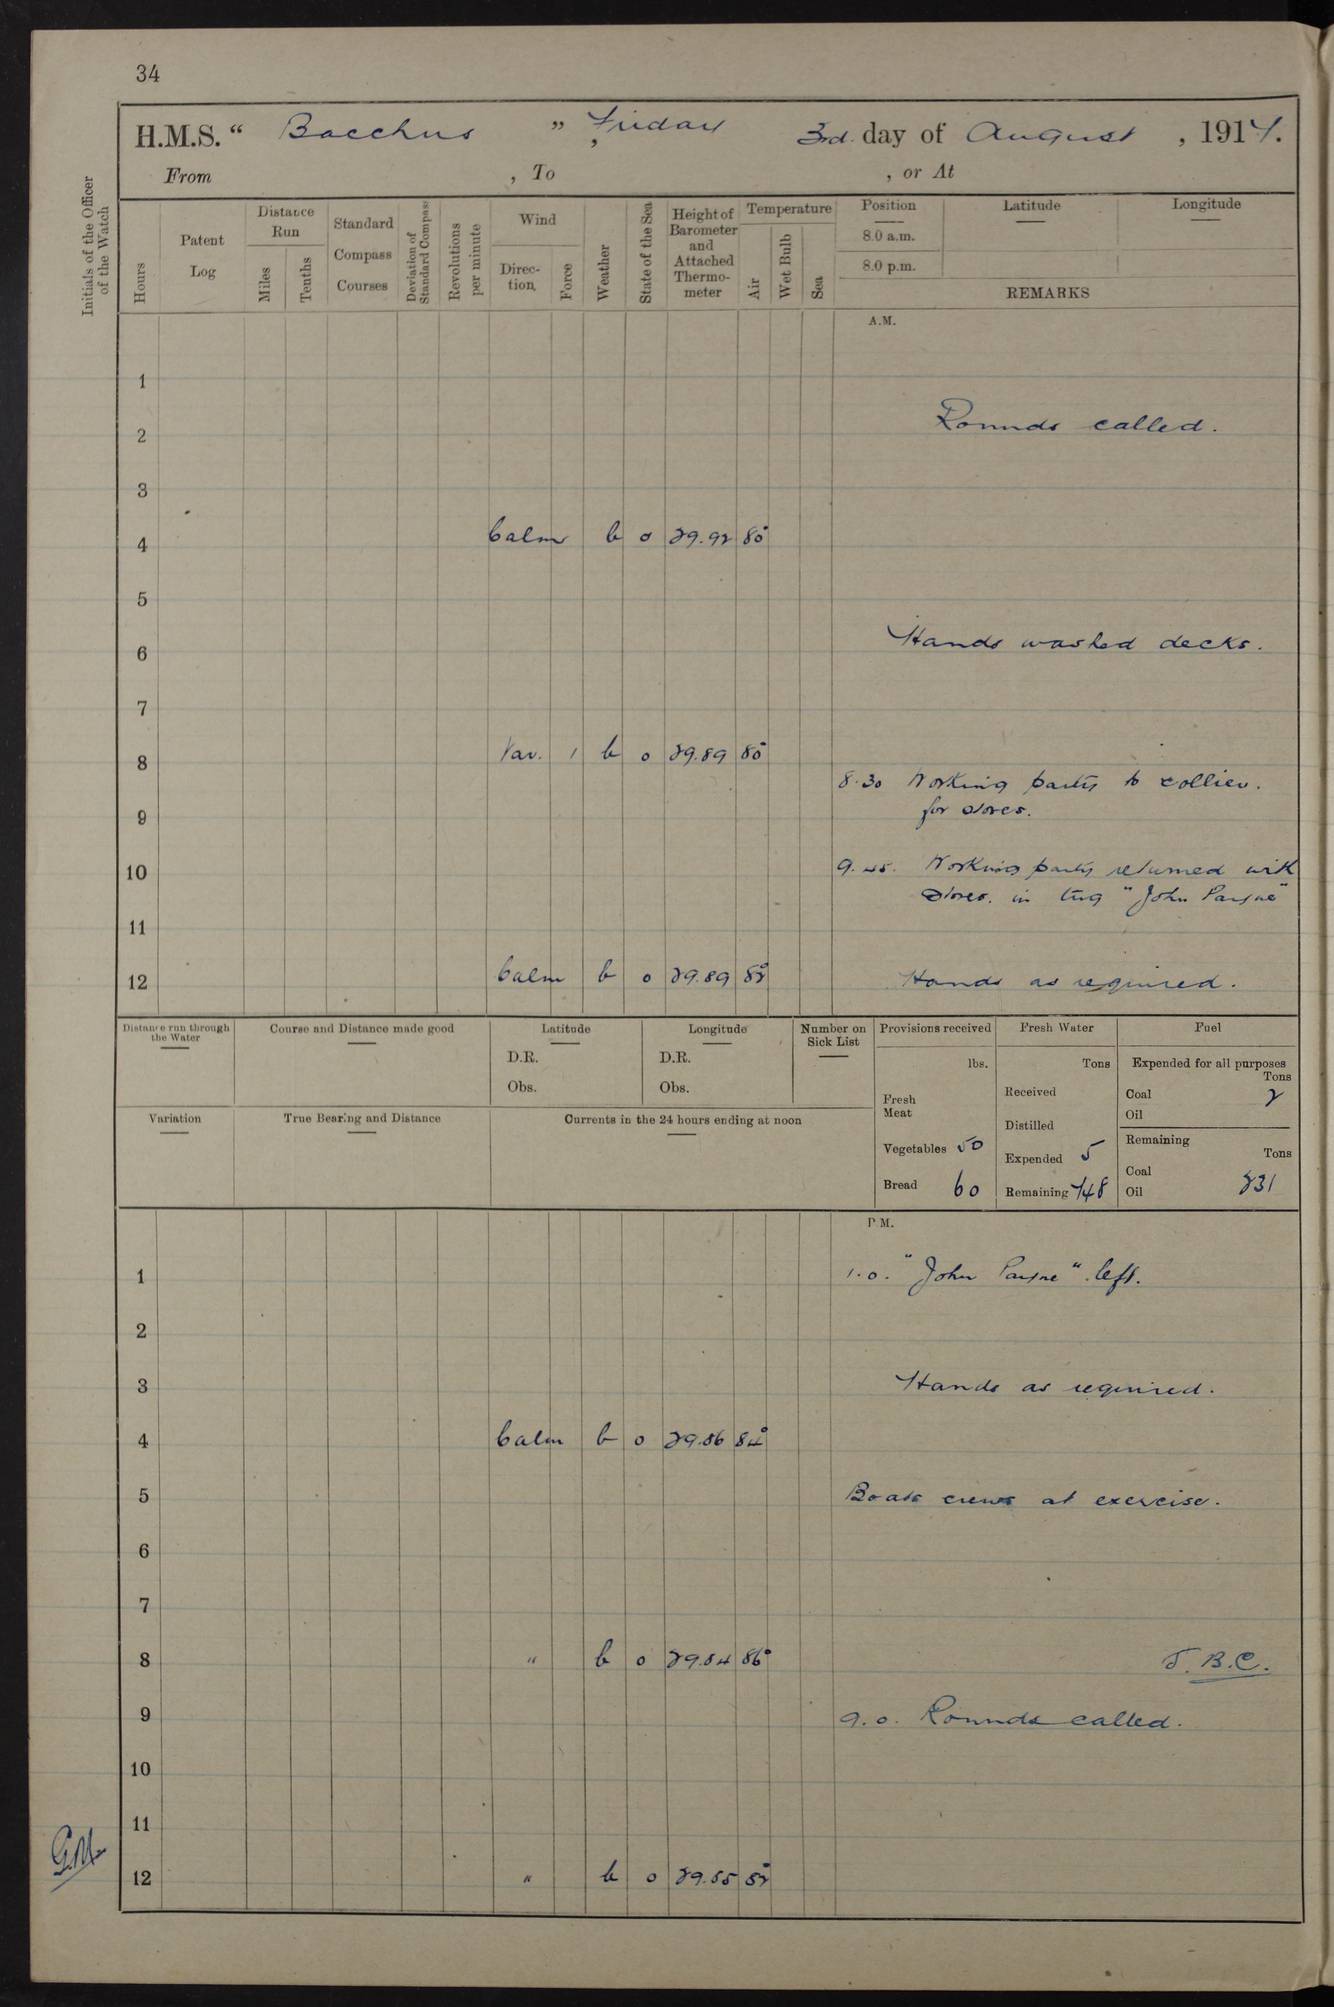 34
H.M.S. “ Bacchus ” , Friday 3rd. day of August , 1917.
From , To , or At
Initials of the Officer of the Watch
Hours
Patent Log
Distance Run
Miles
Tenths
Standard Compass Courses
Deviation of Standard Compass
Revolutions per minute
Wind
Direction
Force
Weather
State of the Sea
Height of Barometer and Attached Thermometer
Temperature
Air
Wet Bulb
Sea
Position Latitude Longitude
8.0 a.m.
8.0 p.m.
REMARKS
A.M.
1
2 Rounds called.
3
4 Calm b 0 29.92 80°
5
6 Hands washed decks.
7
8 Var. 1 b 0 29.89 80°
8.30 Working party to collier.
9 for stores.
10 9.45. Working party returned with
stores. in tug "John Payne"
11
12 Calm b 0 29.89 82° Hands as required.
Distance run through the Water
Course and Distance made good
Latitude
D.R.
Obs.
Longitude
D.R.
Obs.
Number on Sick List
Variation
True Bearing and Distance
Currents in the 24 hours ending at noon
Provisions received
lbs.
Fresh Meat
Vegetables 50
Bread 60
Fresh Water
Tons
Received
Distilled
Expended 5
Remaining 748
Fuel
Expended for all purposes
Tons
Coal 2
Oil
Remaining
Tons
Coal
Oil 231
P.M.
1 1.0. "John Payne" left.
2
3 Hands as required.
4 Calm b 0 29.86 84°
5 Boats crews at exercise.
6
7
8 " b 0 29.84 86° J.B.C.
9 9.0. Rounds called.
10
11
G.M.
12 " b 0 29.85 82°